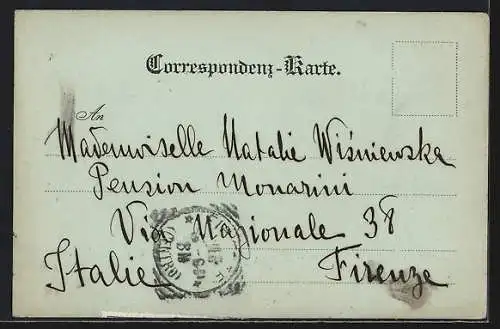 Correspondenz-Karte.
An
Mademoiselle Natalie Wiśniewska
Pension Monarini
Via Nazionale 38
Italie Firenze